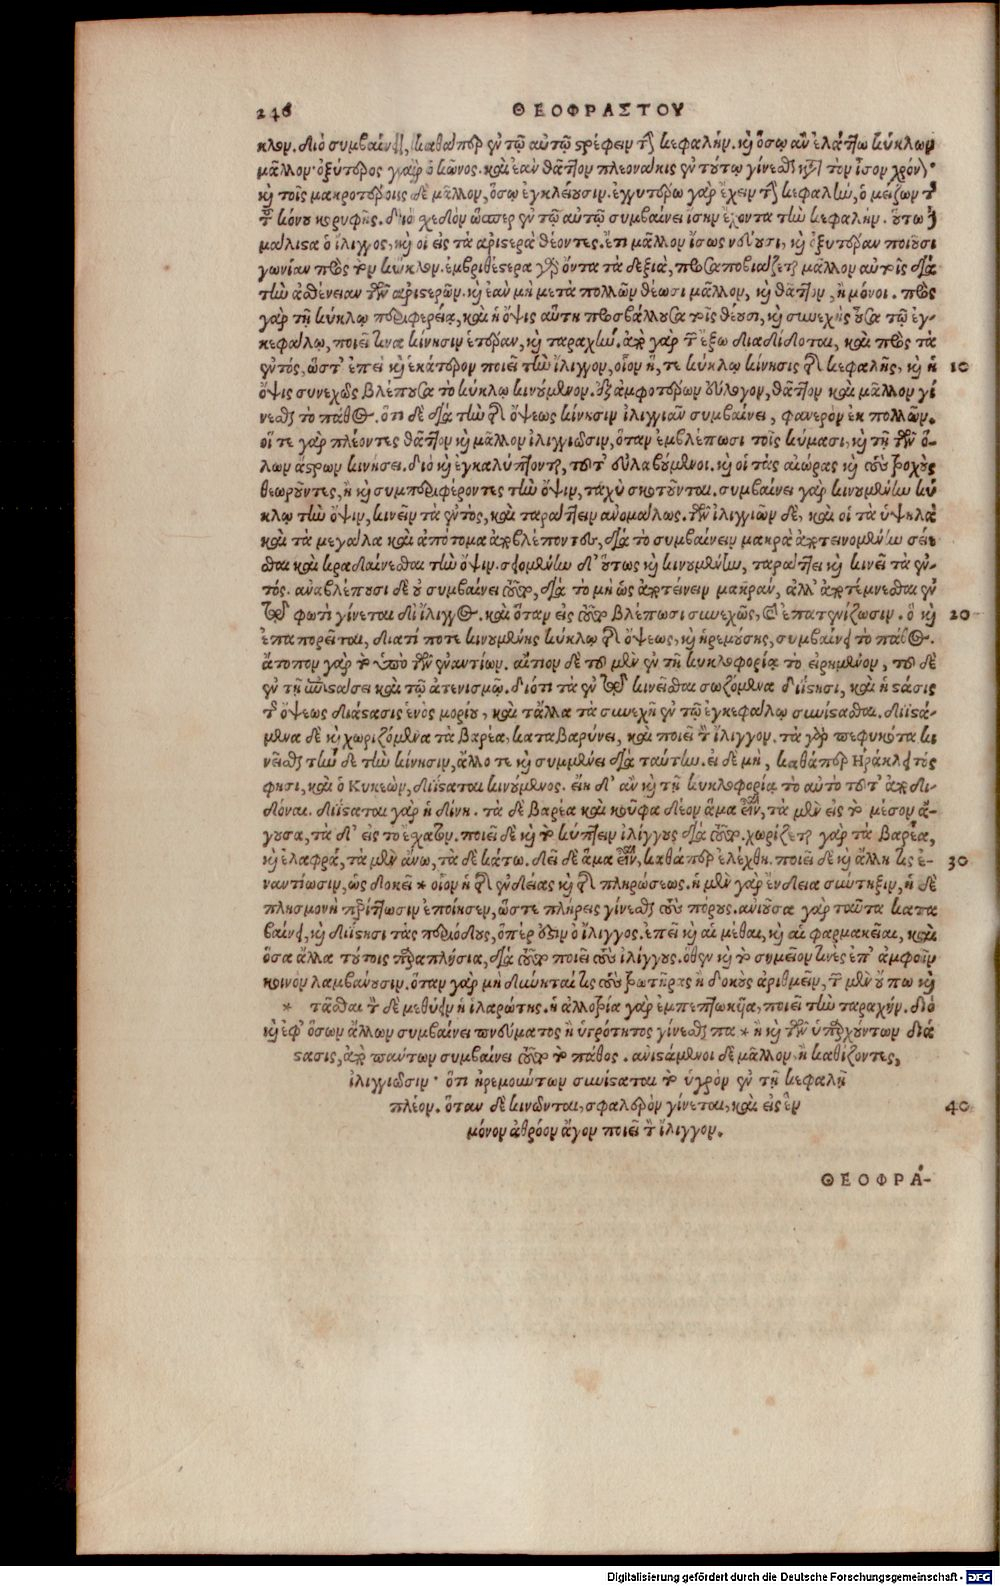 246 ΘΕΟΦΡΑΣΤΟΥ
κλον. διὸ συμβαίνει, καθάπερ ἐν τῷ αὐτῷ στρέφειν τὴν κεφαλήν. καὶ ὅσῳ ἂν ἐλάττω κύκλων
μᾶλλον· ὀξύτερος γὰρ ὁ κῶνος. καὶ ἐὰν θᾶττον πλεονάκις ἐν τούτῳ γίνεσθαι κατὰ τὸν ἴσον χρόνον·
καὶ τοῖς μακροτέροις δὲ μᾶλλον, ὅσῳ ἐγκλείουσιν. ἐγγυτέρω γὰρ ἔχειν τὴν κεφαλὴν, ὁ μείζων τῆς
τοῦ κόνου κορυφῆς. διὸ σχεδὸν ὥσπερ ἐν τῷ αὐτῷ συμβαίνει ἴσην ἔχοντα τὴν κεφαλήν. οὕτω
μάλιστα ὁ ἴλιγγος, καὶ οἱ εἰς τὰ ἀριστερὰ θέοντες. ἔτι μᾶλλον ἴσως νεύουσι, καὶ ὀξυτέραν ποιοῦσι
γωνίαν πρὸς τὸν κύκλον. ἐμβριθέστερα γὰρ ὄντα τὰ δεξιὰ, προσαποβιάζεται μᾶλλον αὐτοῖς διὰ
τὴν ἀσθένειαν τῶν ἀριστερῶν. καὶ ἐὰν μὴ μετὰ πολλῶν θέωσι μᾶλλον, καὶ θᾶττον, ἢ μόνοι. πρὸς
γὰρ τῇ κύκλῳ περιφερείᾳ, καὶ ἡ ὄψις αὕτη προσβάλλουσα τοῖς θέουσι, καὶ συνεχὴς οὖσα τῷ ἐγ-
κεφάλῳ, ποιεῖ τινα κίνησιν ἑτέραν, καὶ ταραχὴν, ἀπὸ γὰρ τοῦ ἔξω διαδίδοται, καὶ πρὸς τὰ
ἐντός, ὥστ' ἐπεὶ καὶ ἑκάτερον ποιεῖ τὴν ἴλιγγον, οἷον ἥ, τε κύκλῳ κίνησις τῆς κεφαλῆς, καὶ ἡ 10
ὄψις συνεχῶς βλέπουσα τὸ κύκλῳ κινούμενον. ἐξ ἀμφοτέρων εὔλογον, θᾶττον καὶ μᾶλλον γί
νεσθαι τὸ πάθος. ὅτι δὲ διὰ τὴν τῆς ὄψεως κίνησιν ἰλιγγιᾶν συμβαίνει, φανερὸν ἐκ πολλῶν.
οἵ τε γὰρ πλέοντες θᾶττον καὶ μᾶλλον ἰλιγγιῶσιν, ὅταν ἐμβλέπωσι τοῖς κύμασι, καὶ τῇ τῶν ὅ-
λων ἄστρων κινήσει. διὸ καὶ ἐγκαλύπτονται, τοῦτ' εὐλαβούμενοι. καὶ οἱ τὰς αἰώρας καὶ τοὺς τροχοὺς
θεωροῦντες, ἢ καὶ συμπεριφέροντες τὴν ὄψιν, ταχὺ σκοτοῦνται. συμβαίνει γὰρ κινουμένην κύ
κλῳ τὴν ὄψιν, κινεῖν τὰ ἐντὸς, καὶ ταράττειν ἀνομάλως. τῶν ἰλιγγιῶν δὲ, καὶ οἱ τὰ ὑψηλὰ
καὶ τὰ μεγάλα καὶ ἀπότομα ἀποβλέποντες, διὰ τὸ συμβαίνειν μακρὰ ἀποτεινομένην σεί-
εσθαι καὶ κραδαίνεσθαι τὴν ὄψιν. σειομένην δ' οὕτως καὶ κινουμένην, ταράττει καὶ κινεῖ τὰ ἐν-
τός. ἀναβλέπουσι δὲ οὐ συμβαίνει τοῦτο, διὰ τὸ μὴ ὡς ἀποτείνειν μακρὰν, ἀλλ' ἀποτέμνεσθαι ἐν
τῷ φωτὶ γίνεται δὲ ἴλιγγος. καὶ ὅταν εἰς τοῦτο βλέπωσι συνεχῶς, καὶ ἐπατενίζωσιν. ὃ καὶ 20
ἐπαπορεῖται, διατί ποτε κινουμένης κύκλῳ τῆς ὄψεως, καὶ ἠρεμούσης, συμβαίνει τὸ πάθος.
ἄτοπον γὰρ τὸ ὑπὸ τῶν ἐναντίων. αἴτιον δὲ τοῦ μὲν ἐν τῇ κυκλοφορίᾳ τὸ εἰρημένον, τοῦ δὲ
ἐν τῇ ἐπιστάσει καὶ τῷ ἀτενισμῷ. διότι τὰ ἐν τῷ κινεῖσθαι σωζόμενα διΐστησι, καὶ ἡ στάσις
τῆς ὄψεως διάστασις ἑνὸς μορίου, καὶ τἄλλα τὰ συνεχῆ ἐν τῷ ἐγκεφάλῳ συνίστασθαι. διϊστά-
μενα δὲ καὶ χωριζόμενα τὰ βαρέα, καταβαρύνει, καὶ ποιεῖ τὸν ἴλιγγον. τὰ γὰρ πεφυκότα κι
νεῖσθαι τὴν δὲ τὴν κίνησιν, ἄλλοτε καὶ συμμένει διὰ ταύτην. εἰ δὲ μὴ, καθάπερ Ἡράκλειτός
φησι, καὶ ὁ Κυκεὼν, διΐσταται κινούμενος. εἴη δ' ἂν καὶ τῇ κυκλοφορίᾳ τὸ αὐτὸ τοῦτ' ἀποδι-
δόναι. διΐσταται γὰρ ἡ δίνη. τὰ δὲ βαρέα καὶ κοῦφα δέον ἅμα εἶναι, τὰ μὲν εἰς τὸ μέσον ἄ-
γουσα, τὰ δ' εἰς τὸ ἔσχατον. ποιεῖ δὲ καὶ τὸ κύπτειν ἰλίγγους διὰ τοῦτο. χωρίζεται γὰρ τὰ βαρέα,
καὶ ἐλαφρά, τὰ μὲν ἄνω, τὰ δὲ κάτω. δεῖ δὲ ἅμα εἶναι, καθάπερ ἐλέχθη. ποιεῖ δὲ καὶ ἄλλη τις ἐ- 30
ναντίωσιν, ὡς δοκεῖ * οἷον ἡ τῆς ἐνδείας καὶ τῆς πληρώσεως. ἡ μὲν γὰρ ἔνδεια σύντηξιν, ἡ δὲ
πλησμονὴ περίττωσιν ἐποίησεν, ὥστε πλήρεις γίνεσθαι τοὺς πόρους. ἀνιοῦσα γὰρ ταῦτα κατα
βαίνει, καὶ διΐστησι τὰς περιόδους, ὅπερ ἐστὶν ὁ ἴλιγγος. ἐπεὶ καὶ αἱ μέθαι, καὶ αἱ φαρμακεῖαι, καὶ
ὅσα ἄλλα τούτοις παραπλήσια, διὰ τοῦτο ποιεῖ τοὺς ἰλίγγους. ὅθεν καὶ τὸ σημεῖον τινὲς ἐπ' ἀμφοῖν
κοινὸν λαμβάνουσιν. ὅταν γὰρ μὴ δύνηται τις τοὺς φωτῆρας ἢ δοκοὺς ἀριθμεῖν, τοῦ μὲν οὕπω καὶ
* τᾶσθαι τοῦ δὲ μεθύειν ἡ ἱλαρώτης. ἡ ἀλλοτρία γὰρ ἐμπεπτωκυῖα, ποιεῖ τὴν ταραχήν. διὸ
καὶ ἐφ' ὅσων ἄλλων συμβαίνει πνεύματος ἢ ὑγρότητος γίνεσθαι πα * ἢ καὶ τῶν ὑπαρχόντων διά
στασις, ἀπὸ πάντων συμβαίνει τοῦτο τὸ πάθος. ἀνιστάμενοι δὲ μᾶλλον ἢ καθίζοντες,
ἰλιγγιῶσιν· ὅτι ἠρεμούντων συνίσταται τὸ ὑγρὸν ἐν τῇ κεφαλῇ
πλέον. ὅταν δὲ κινῶνται, σφαλερὸν γίνεται, καὶ εἰς ἓν 40
μόνον ἀθρόον ἄγον ποιεῖ τὸν ἴλιγγον.
ΘΕΟΦΡΑ-
Digitalisierung gefördert durch die Deutsche Forschungsgemeinschaft - DFG